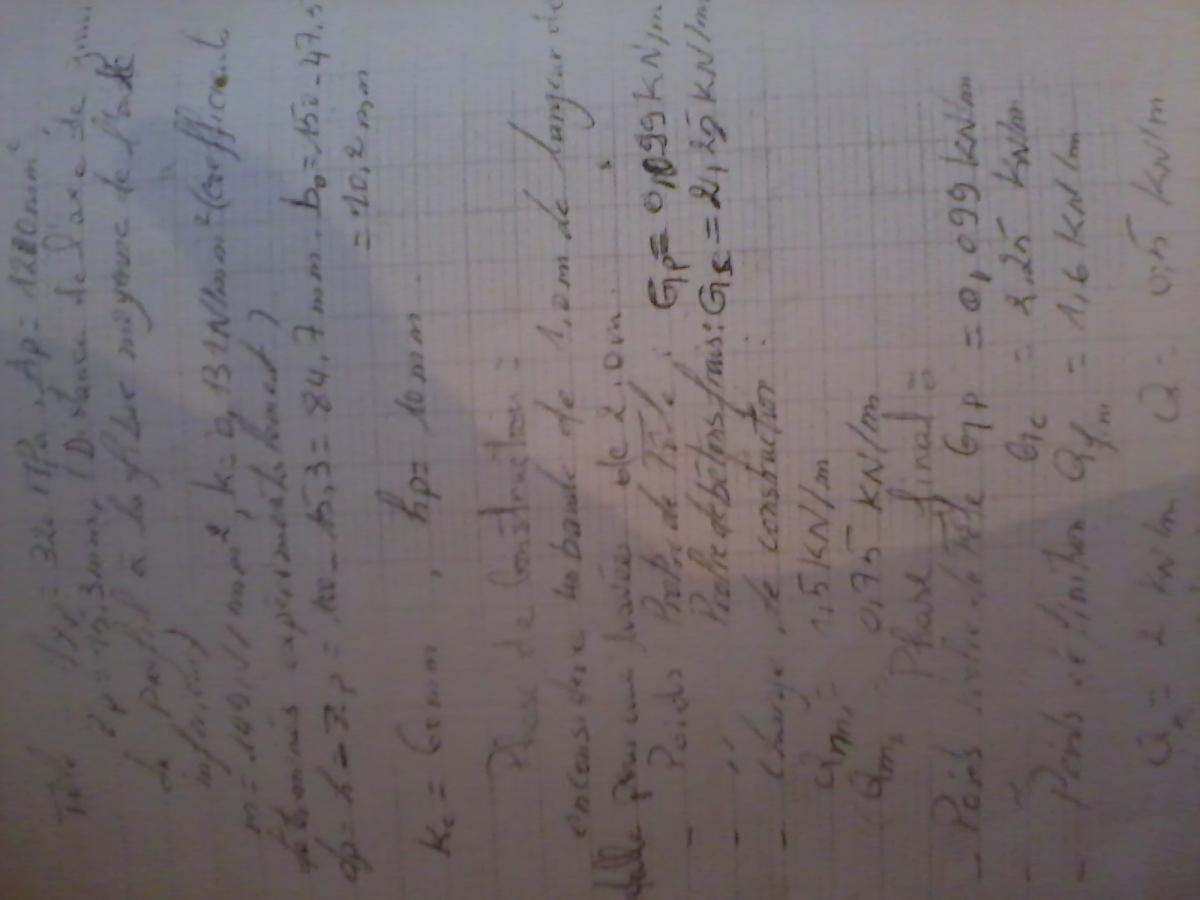 Tôle fyp = 320 MPa, Ap = 1280mm²
Zp = 15,3mm, (Distance de l'axe de
du profil à la fibre moyenne de l'acier
inférieur)
m = 149, N/mm², k = 0,131N/mm² (coefficients
déterminés expérimentalement)
dp = h - Zp = 100 - 15,3 = 84,7mm. b0 = 150 - 47,5
= 10,2mm
hc = 60mm, hp = 10mm.
Phase de Construction :
on considère la bande de 1,0m de largeur de
dalle pour une travée de 2,0m.
- Poids Propre de Tôle : Gp = 0,099 KN/m
- " Propre de bétons frais : Gc = 2,25 KN/m
- Charge de construction :
Qm1 = 1,5 KN/m
Qm2 0,75 KN/m
Phase final :
- Poids Tôle Gp = 0,099 KN/m
- " Gc = 2,25 KN/m
- Poids de finition Qfin = 1,6 KN/m
= 2 KN/m Q = 0,5 KN/m